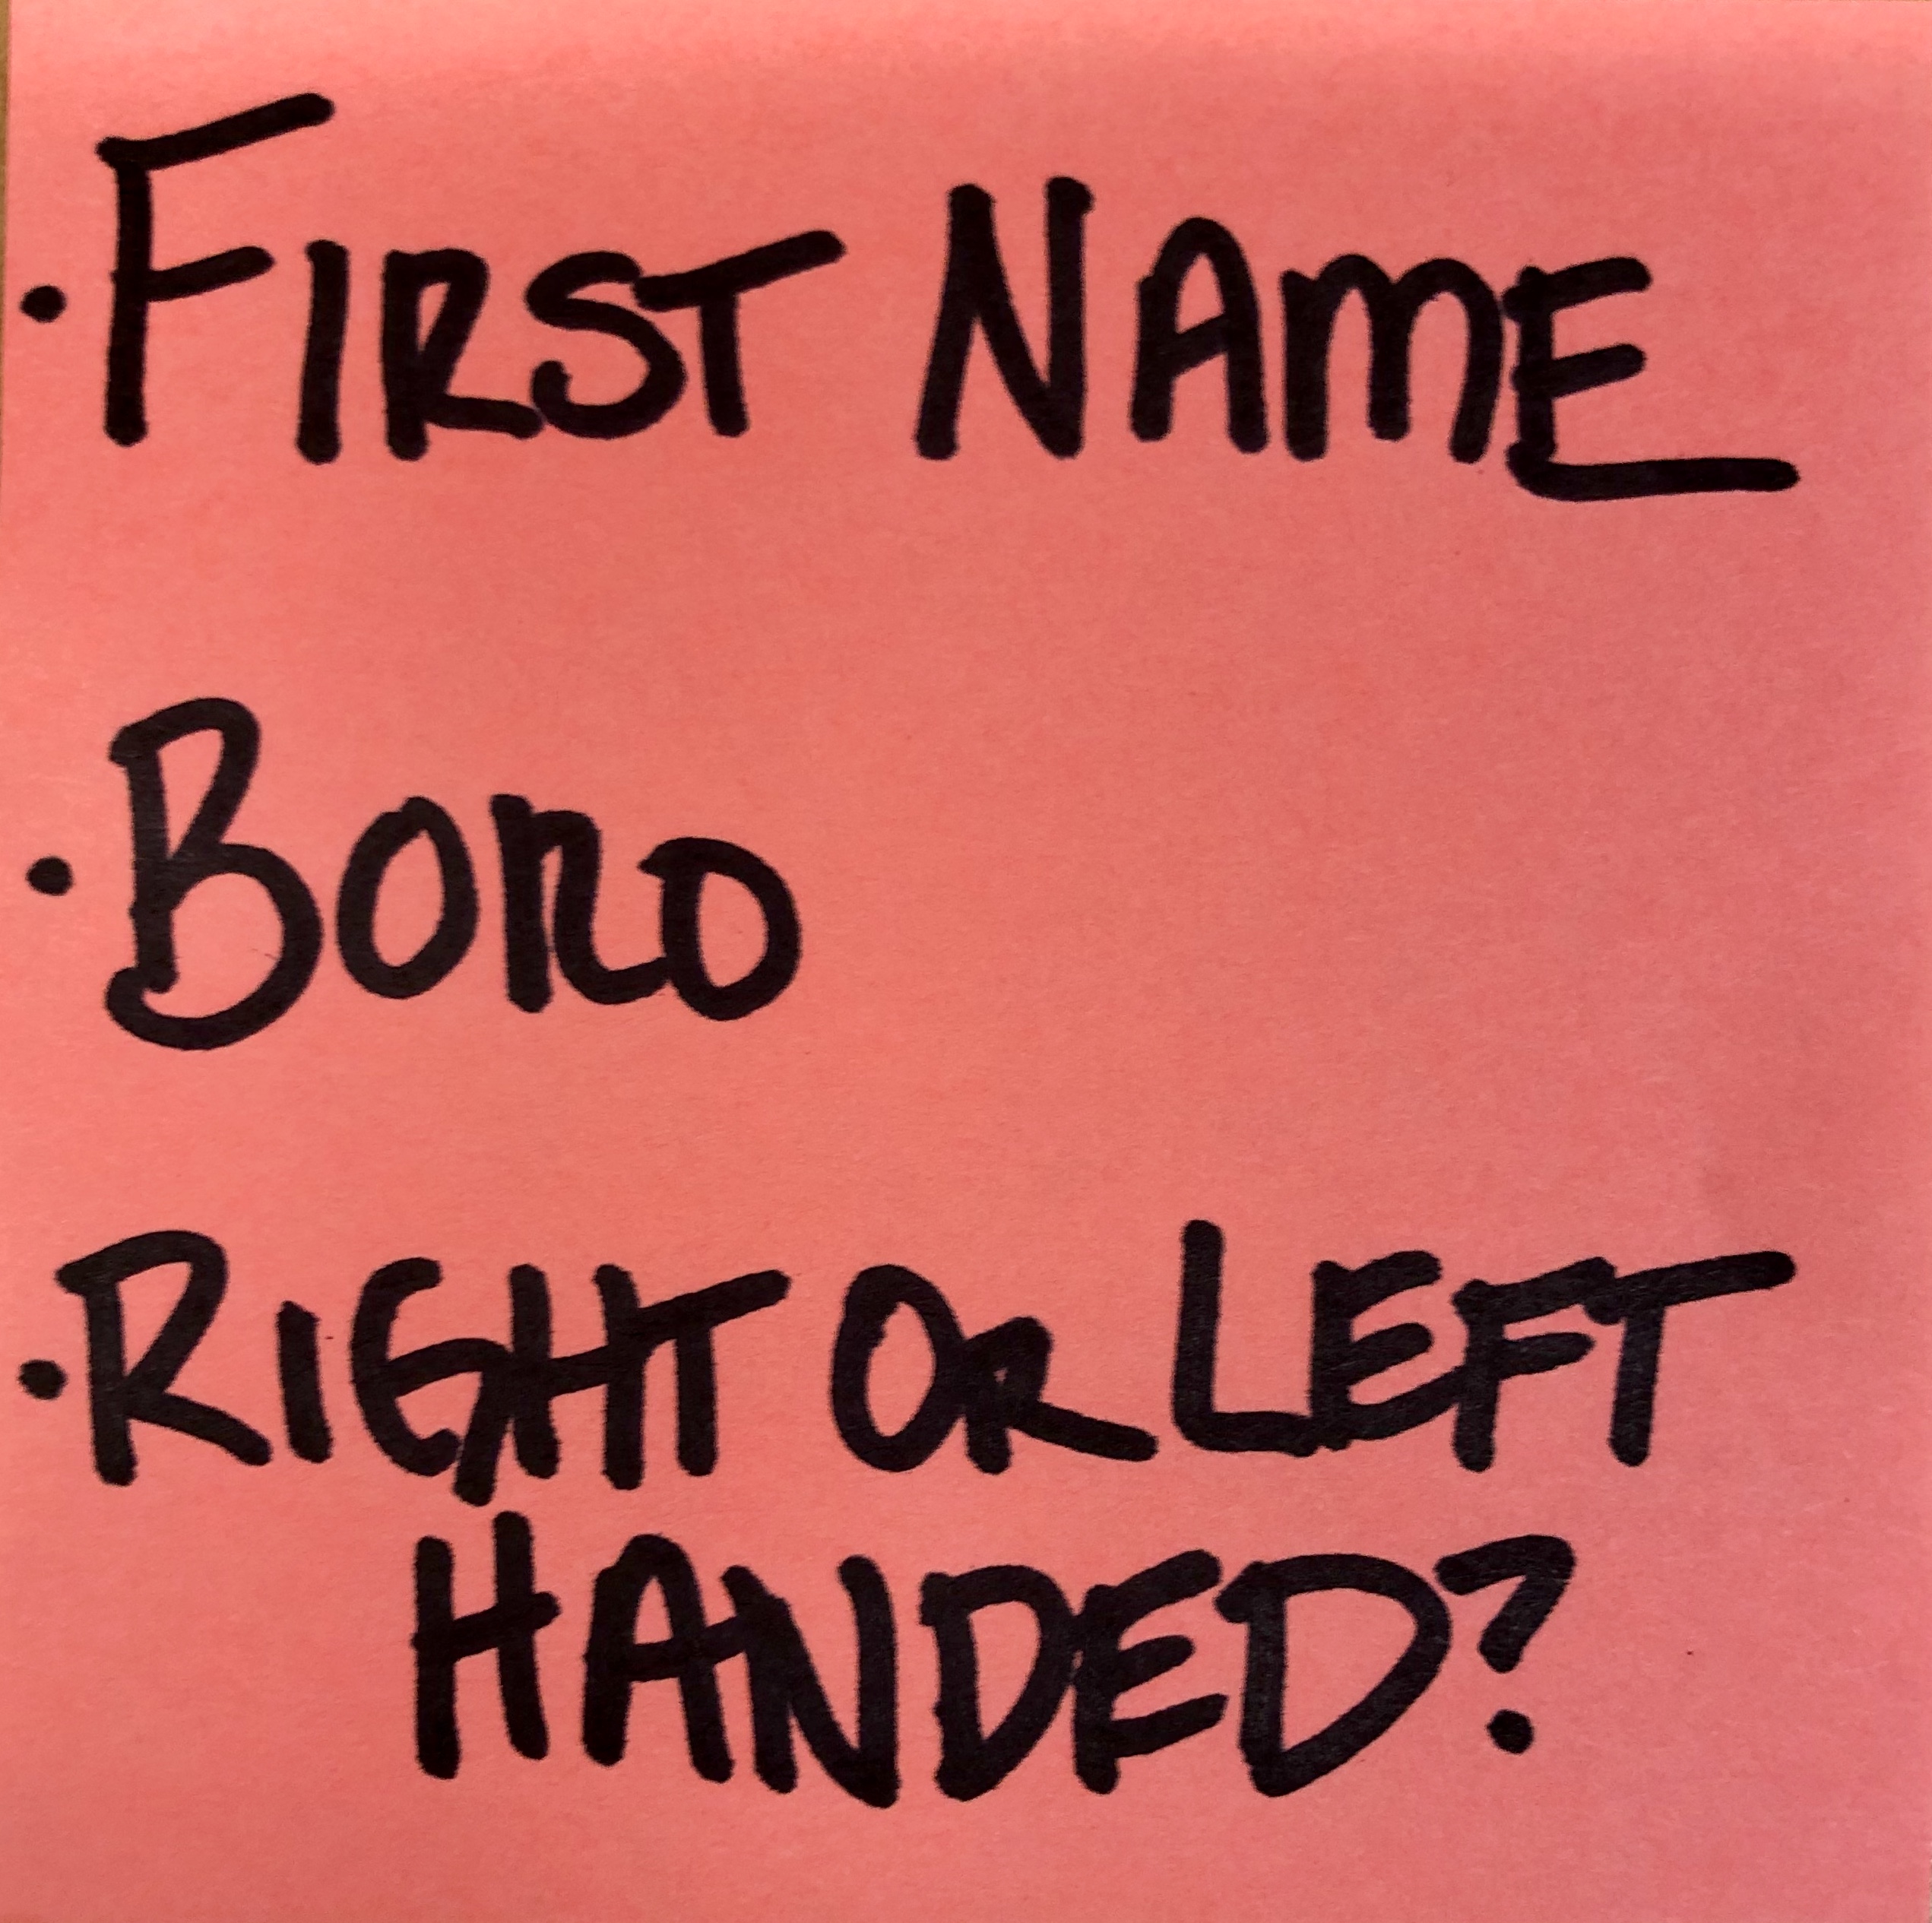 · FIRST NAME
· BORO
· RIGHT OR LEFT
HANDED?